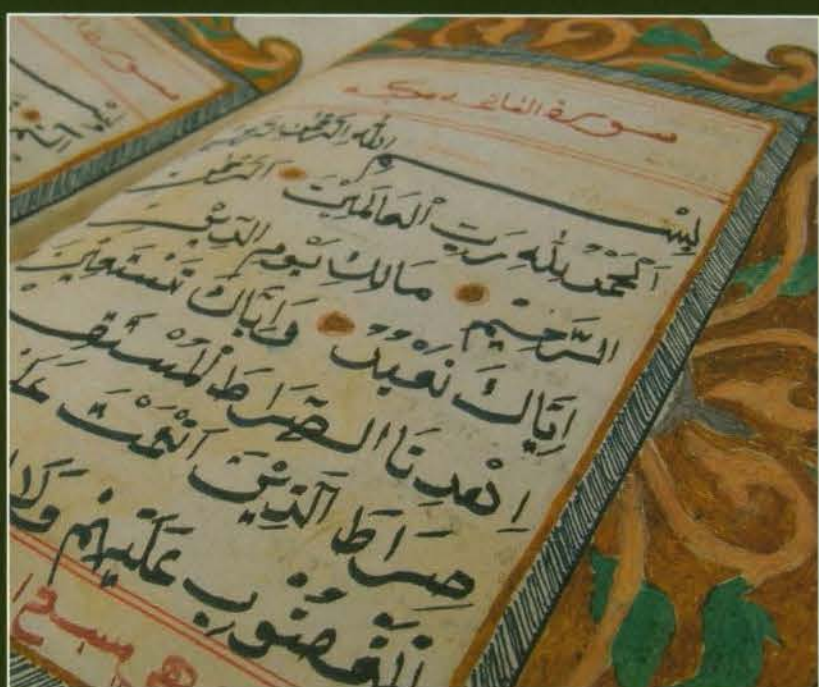 سورة الفاتحة مكية
بِسْمِ اللّٰهِ الرَّحْمٰنِ الرَّحِيْمِ
اَلْحَمْدُ لِلّٰهِ رَبِّ الْعَالَمِيْنَ الرَّحْمٰنِ
الرَّحِيْمِ مَالِكِ يَوْمِ الدِّيْنِ
اِيَّاكَ نَعْبُدُ وَاِيَّاكَ نَسْتَعِيْنُ
اِهْدِنَا الصِّرَاطَ الْمُسْتَقِ
صِرَاطَ الَّذِيْنَ اَنْعَمْتَ عَلَ
الْمَغْضُوْبِ عَلَيْهِمْ وَلَا